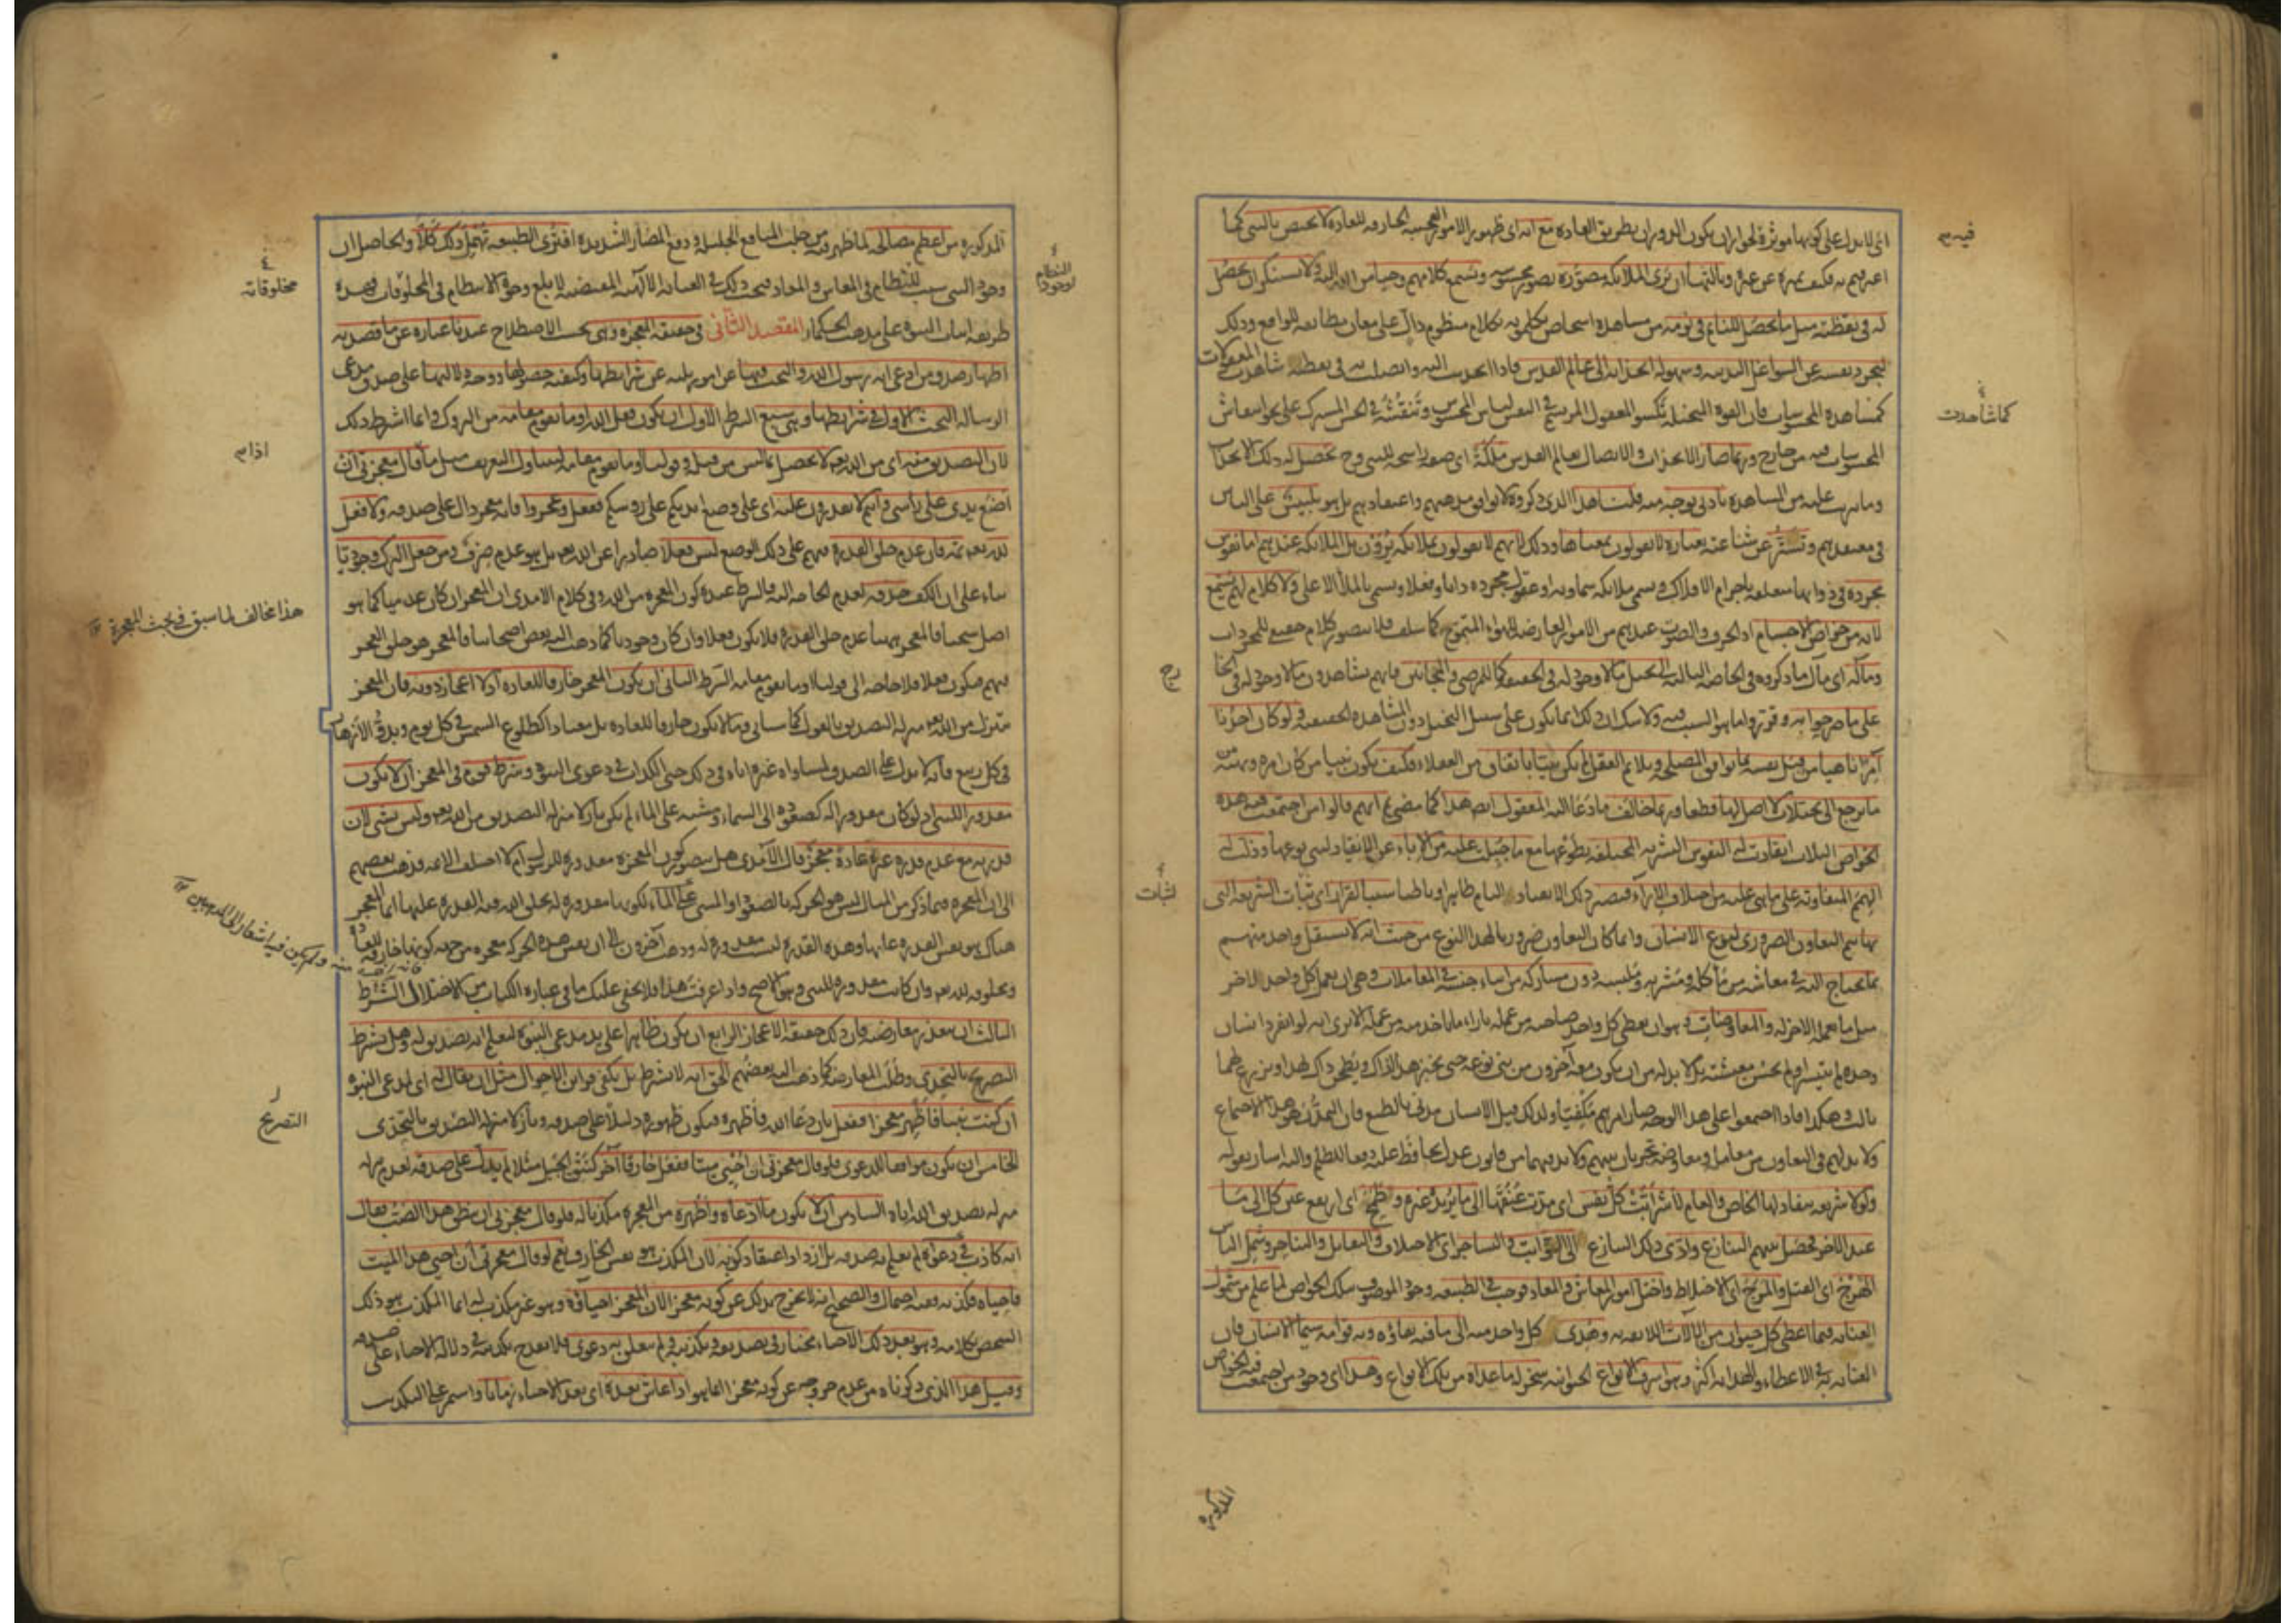 اى لا يدل على كونها مؤثرة لجواز ان يكون الدوران بطريق العادة مع انه اى ظهور الامور العجيبة الخارقة للعادة لا يختص بالنبى كما
فيه
اعترفتم به فكيف تميزه عن غيره وثالثها ان يرى الملائكة مصورة بصور محسوسة ويسمع كلامهم وحيا من الله اليه ولا يستنكر ان يحصل
له فى يقظته مثل ما يحصل للنائم فى نومه من مشاهدة اشخاص يكلمونه بكلام منظوم دال على معان مطابقة للواقع وذلك
لتجرد نفسه عن الشواغل البدنية وسهولة انجذابه الى عالم القدس فاذا انجذبت اليه واتصلت به فى يقظته شاهدت المعقولات
كما شاهدت
كمشاهدة المحسوسات فان القوة المتخيلة تكسو المعقول المرتسم فى النفس لباس المحسوس وتنقشه فى الحس المشترك على نحو انتقاش
المحسوسات فيه من خارج وربما صار الانجذاب والاتصال بعالم القدس ملكة اى صفة راسخة للنبى وح تحصل له ذلك الانجذاب
وما يترتب عليه من المشاهدة بادنى توجه منه قلنا هذا الذى ذكروه لا يوافق مذهبهم واعتقادهم بل هو تلبيس على الناس
فى معتقدهم وتستر عن شناعته بعبارة لا يقولون بمعناها وذلك لانهم لا يقولون بملائكة يرون بل الملائكة عندهم اما نفوس
مجردة فى ذواتها متعلقة باجرام الافلاك ويسمى ملائكة سماوية او عقول مجردة ذاتا وفعلا ويسمى بالملأ الاعلى ولا كلام لهم يسمع
لانه من خواص الاجسام اذ الحرف والصوت عندهم من الامور العارضة للهواء المتموج كما سلف فلا يتصور كلام حقيقى للمجردات
رج
ومآله اى مآل ما ذكروه فى الخاصة الثالثة الى تخيل ما لا وجود له فى الحقيقة كما للمرضى والمجانين فانهم يشاهدون ما لا وجود له فى الخا
على ما صرحوا به وقرروا ما هو السبب فيه ولا شك ان ذلك انما يكون على سبيل التخيل دون المشاهدة الحقيقية ولو كان احدنا
آمرا ناهيا من قبل نفسه بما يوافق المصلحة ويلائم العقل لم يكن نبيا باتفاق من العقلاء فكيف يكون نبيا من كان امره ونهيه من
ما يرجع الى تخيلات لا اصل لها قطعا وربما خالف ما دعا اليه المعقول ايضا هذا كما مضى ثم انهم قالوا من اجتمعت فيه هذه
الخواص الثلاث انقادت له النفوس البشرية المختلفة بطوعها مع ما جبلت عليه من الاباء عن الانقياد لبنى نوعها وذلت له
لثبات
الهمم المتفاوتة على ما هى عليه من اختلاف الاراء فيصير ذلك الانقياد التام ظاهرا وباطنا سببا لقرار اى ثبات الشريعة التى
بها يتم التعاون الضرورى لنوع الانسان وانما كان التعاون ضروريا لهذا النوع من حيث انه لا يستقل واحد منهم
بما يحتاج اليه فى معاشه من مأكله ومشربه وملبسه دون مشاركة من ابناء جنسه فى المعاملات وهى ان يعمل كل واحد لاخر
مثل ما يعمله الاخر له والمعاوضات وهو ان يعطى كل واحد صاحبه من عمله بازاء ما ياخذ منه من عمله الا ترى انه لو انفرد انسان
وحده لم يتيسر او لم يحسن معيشته بل لا بد له من ان يكون معه آخرون من بنى نوعه حتى يخبز هذا لذاك ويطحن ذاك لهذا ويزرع لهما
ثالث وهكذا فاذا اجتمعوا على هذا الوجه صار امرهم مكفيا ولذلك قيل الانسان مدنى بالطبع فان التمدن هو هذا الاجتماع
ولا بد لهم فى التعاون من معاملة ومعاوضة تجريان بينهم ولا بد فيهما من قانون عدل يحافظ عليه دفعا للظلم واليه اشار بقوله
ولولا شريعة ينقاد لها الخاص والعام لاشرأبت كل نفس اى مدت عنقها الى ما يريده غيره وطمح اى ارتفع عين كل الى ما
عند الاخر فحصل بينهم التنازع وادى ذلك التنازع الى التواثب والتشاجر اى الاختلاف والتقاتل والتناحر وشمل الناس
الهرج اى القتل والمرج اى الاختلاط واختل امور المعاش والمعاد فوجب فى الطبيعة وجود الموصوف بتلك الخواص لما علم من شمول
العناية فيما اعطى كل حيوان من الالات اللائقة به وهدى كل واحد منه الى ما فيه بقاؤه وبه قوامه سيما الانسان فان
العناية به فى الاعطاء والهداية اكثر وهو اشرف الانواع الحيوانية سخر له ما عداه من تلك الانواع وهذا اى وجود من اجتمعت فيه الخواص
المذكورة
المذكورة من اعظم مصالحه لما ظهر فيه من جلب المنافع الجليلة ودفع المضار الشديدة افترى الطبيعة تهمل ذلك كلا والحاصل ان
النظام لوجود
وجود النبى سبب للنظام فى المعاش والمعاد فيجب ذلك فى العناية الالهية المقتضية لابلغ وجوه الانتظام فى المخلوقات فهذه
مخلوقاته
طريقة اثبات النبوة على مذهب الحكماء المقصد الثانى فى حقيقة المعجزة وهى بحسب الاصطلاح عندنا عبارة عن ما قصد به
اظهار صدق من ادعى انه رسول الله والبحث فيها عن امور ثلثة عن شرائطها وكيفية حصولها ووجه دلالتها على صدق مدعى
الرسالة البحث الاول فى شرائطها وهى سبع الشرط الاول ان يكون فعل الله او ما يقوم مقامه من التروك وانما اشترط ذلك
لان التصديق منه اى من الله تعم لا يحصل بما ليس من قبله وقولنا او ما يقوم مقامه ليتناول التعريف مثل ما قال معجزتى ان
اذام
اضع يدى على رأسى وانتم لا تقدرون عليه اى على وضع ايديكم على رؤسكم ففعل وعجزوا فانه معجز دال على صدقه ولا فعل
لله تعم ثمه فان عدم خلق القدرة فيهم على ذلك الوضع ليس فعلا صادرا عن الله تعم بل هو عدم صرف ومن جعل الترك وجوديا
بناء على ان الكف حذفه لعدم الحاجة اليه فالشرط عنده كون المعجزة من الله وفى كلام الامدى ان المعجز ان كان عدميا كما هو
هذا مخالف لما سبق فى بحث المعجزة ١٢
اصل شيخنا فالمعجز ههنا عدم خلق القدرة فلا يكون فعلا وان كان وجوديا كما ذهب اليه بعض اصحابنا فالمعجز هو خلق العجز
فيهم فيكون فعلا فلا حاجة الى قولنا او ما يقوم مقامه الشرط الثانى ان يكون المعجز خارقا للعادة اذ لا اعجاز دونه فان المعجز
متنزل من الله تعم منزلة التصديق بالقول كما سياتى وما لا يكون خارقا للعادة بل معتادا كطلوع الشمس فى كل يوم وبدو الازهار
فى كل ربيع فانه لا يدل على الصدق لمساواة غيره اياه فى ذلك حتى الكذاب فى دعوى النبوة وشرط قوم فى المعجز ان لا يكون
مقدورا للنبى اذ لو كان مقدورا له كصعوده الى السماء ومشيه على الماء لم يكن نازلا منزلة التصديق من الله تعم وليس بشى لان
قدرته مع عدم قدرة غيره عادة معجز قال الآمدى هل يتصور كون المعجزة مقدورة للرسول ام لا اختلف الائمة فذهب بعضهم
الى ان المعجزة فيما ذكر من المثال ليس هو الحركة بالصعود او المشى على الماء لكونها مقدورة له بخلق الله فيه القدرة عليها انما المعجز
هناك هو نفس القدرة عليها وهذه القدرة ليست مقدورة له وذهب آخرون الى ان نفس هذه الحركة معجزة من جهة كونها خارقة للعادة
ولم يكن فيه اشعار الى المذهبين ١٢
ومخلوقة لله تعم وان كانت مقدورة للنبى وهو الاصح واذا عرفت هذا فلا يخفى عليك ما فى عبارة الكتاب من الاختلال الشرط
الثالث ان يتعذر معارضته فان ذلك حقيقة الاعجاز الرابع ان يكون ظاهرا على يد مدعى النبوة ليعلم انه تصديق له وهل يشترط
التصريح بالتحدى وطلب المعارضة كما ذهب اليه بعضهم الحق انه لا يشترط بل يكفى قرائن الاحوال مثل ان يقال له اى لمدعى النبوة
التصريح
ان كنت نبيا فاظهر معجزا ففعل بان دعا الله فاظهره فيكون ظهوره دليلا على صدقه ونازلا منزلة التصريح بالتحدى
الخامس ان يكون موافقا للدعوى فلو قال معجزتى ان احيى ميتا ففعل خارقا آخر كنتق الجبل مثلا لم يدل على صدقه لعدم تنزله
منزلة تصديق الله اياه السادس ان لا يكون ما ادعاه واظهره من المعجزة مكذبا له فلو قال معجزتى ان ينطق هذا الضب فقال
انه كاذب فى دعواه لم يعلم به صدقه بل ازداد اعتقاد كذبه لان المكذب هو نفس الخارق نعم لو قال معجزتى ان احيى هذا الميت
فاحياه فكذبه ففيه احتمال والصحيح انه لا يخرج بذلك عن كونه معجزا لان المعجز احياؤه وهو غير مكذب له انما المكذب هو ذلك
الشخص بكلامه وهو بعد ذلك الاحياء مختار فى تصديقه وتكذيبه ولم يتعلق به دعوى فلا يقدح تكذيبه فى دلالة الاحياء على صدقه
وقيل هذا الذى ذكرناه من عدم خروجه عن كونه معجزا انما هو اذا عاش بعده اى بعد الاحياء زمانا واستمر على التكذيب